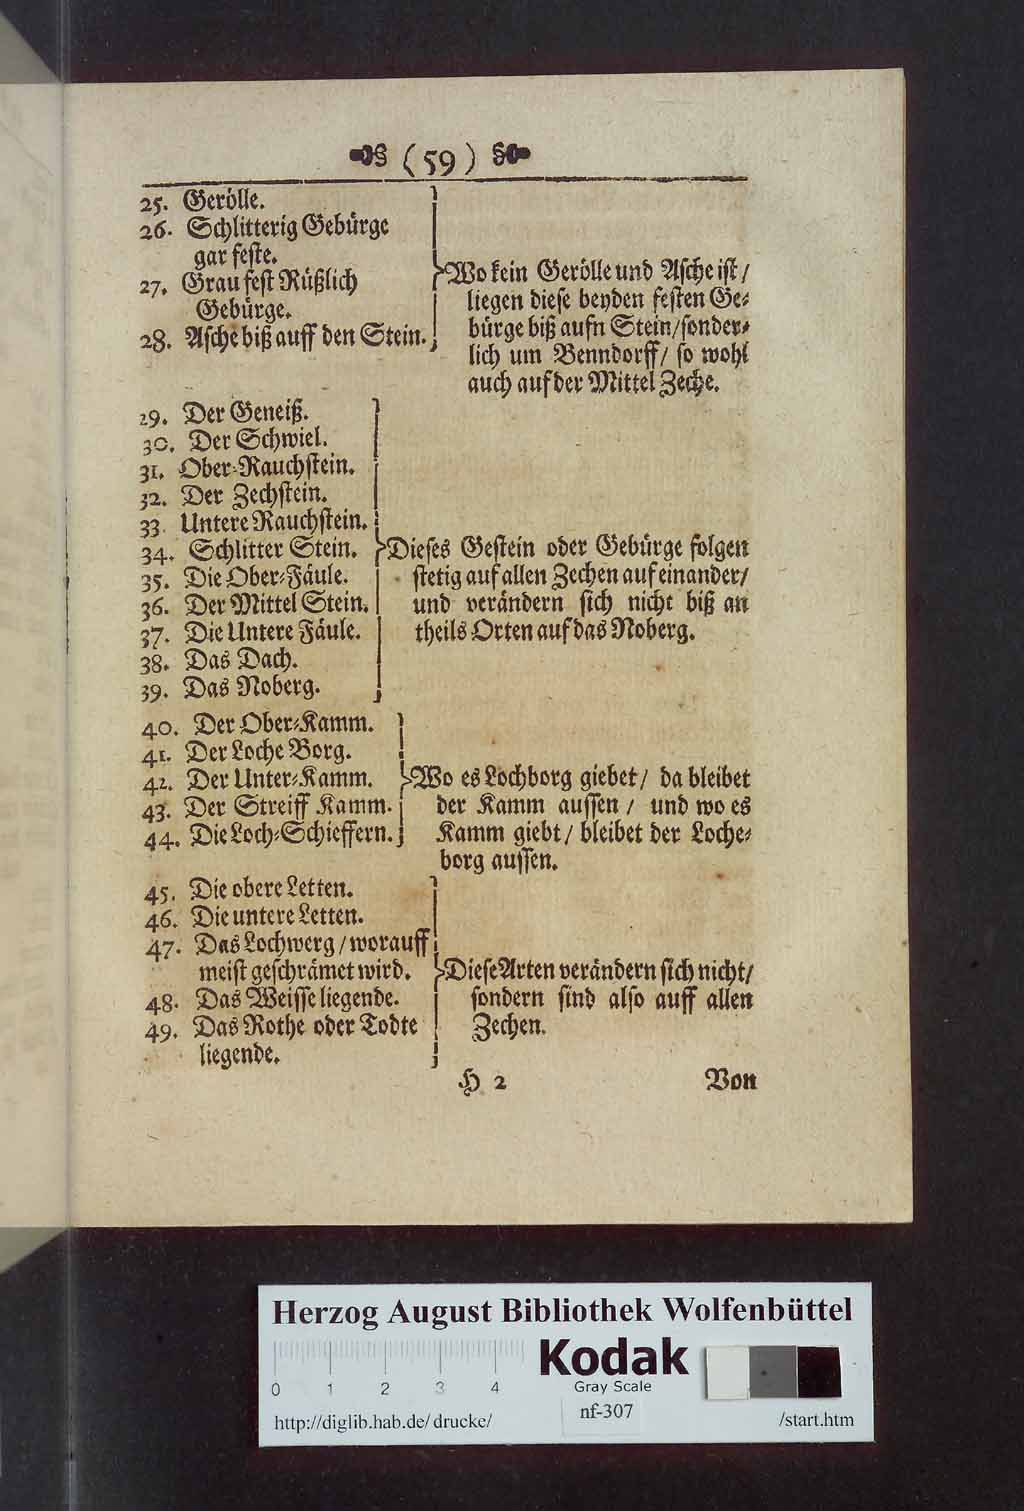 (59)
25. Gerölle.
26. Schlitterig Gebürge
gar feste.
27. Grau fest Rüßlich
Gebürge.
28. Asche biß auff den Stein.
Wo kein Gerölle und Asche ist/
liegen diese beyden festen Ge-
bürge biß aufn Stein/sonder-
lich um Benndorff/ so wohl
auch auf der Mittel Zeche.
29. Der Geneiß.
30. Der Schwiel.
31. Ober-Rauchstein.
32. Der Zechstein.
33 Untere Rauchstein.
34. Schlitter Stein.
35. Die Ober-Fäule.
36. Der Mittel Stein.
37. Die Untere Fäule.
38. Das Dach.
39. Das Noberg.
Dieses Gestein oder Gebürge folgen
stetig auf allen Zechen auf einander/
und verändern sich nicht biß an
theils Orten auf das Noberg.
40. Der Ober-Kamm.
41. Der Loche Borg.
42. Der Unter-Kamm.
43. Der Streiff Kamm.
44. Die Loch-Schieffern.
Wo es Lochborg giebet/ da bleibet
der Kamm aussen/ und wo es
Kamm giebt/ bleibet der Loche-
borg aussen.
45. Die obere Letten.
46. Die untere Letten.
47. Das Lochwerg/worauff
meist geschrämet wird.
48. Das Weisse liegende.
49. Das Rothe oder Todte
liegende.
Diese Arten verändern sich nicht/
sondern sind also auff allen
Zechen.
H 2
Von
Herzog August Bibliothek Wolfenbüttel
Kodak
Gray Scale
0 1 2 3 4
nf-307
http://diglib.hab.de/drucke/
/start.htm